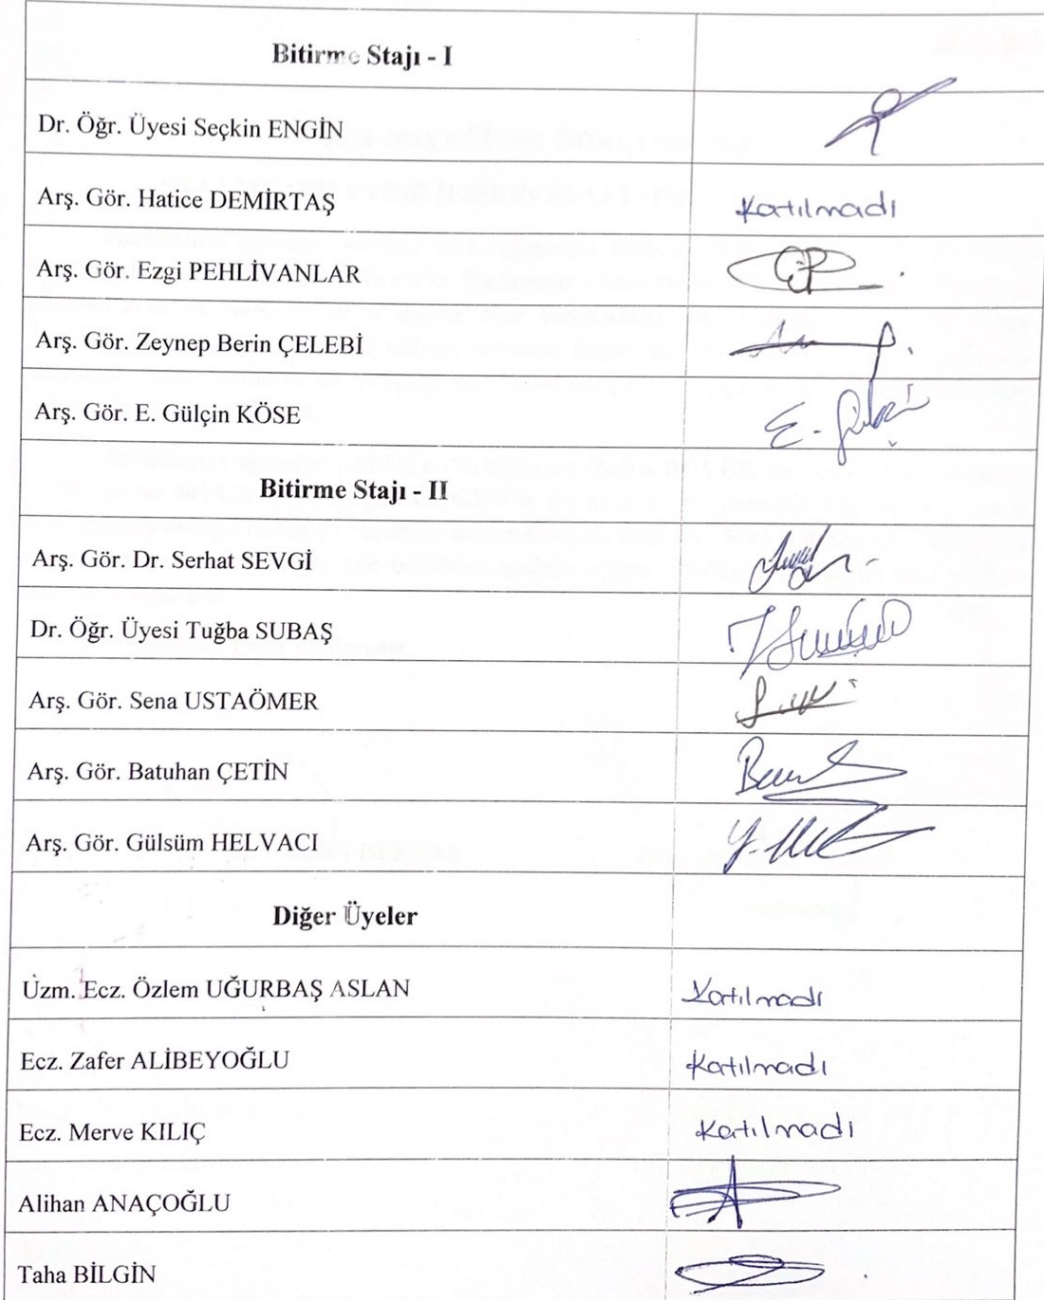 Bitirme Stajı - I
Dr. Öğr. Üyesi Seçkin ENGİN
Arş. Gör. Hatice DEMİRTAŞ Katılmadı
Arş. Gör. Ezgi PEHLİVANLAR
Arş. Gör. Zeynep Berin ÇELEBİ
Arş. Gör. E. Gülçin KÖSE E. Gülçin
Bitirme Stajı - II
Arş. Gör. Dr. Serhat SEVGİ
Dr. Öğr. Üyesi Tuğba SUBAŞ
Arş. Gör. Sena USTAÖMER
Arş. Gör. Batuhan ÇETİN
Arş. Gör. Gülsüm HELVACI
Diğer Üyeler
Uzm. Ecz. Özlem UĞURBAŞ ASLAN Katılmadı
Ecz. Zafer ALİBEYOĞLU Katılmadı
Ecz. Merve KILIÇ Katılmadı
Alihan ANAÇOĞLU
Taha BİLGİN